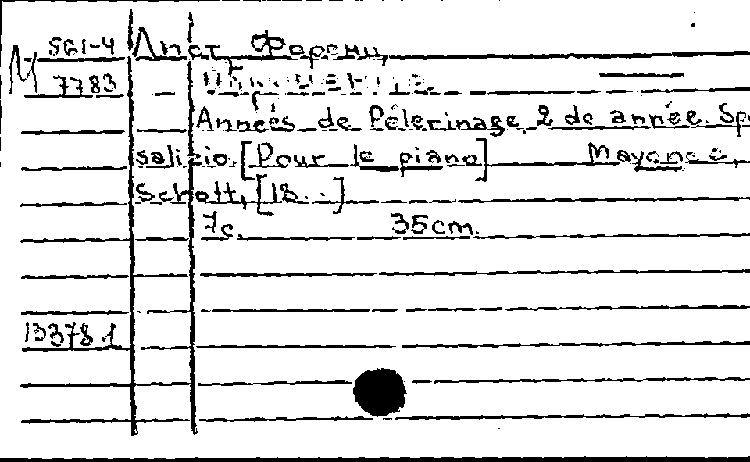 М 561-4 Лист Ференц,
7783
Années de Pélerinage 2 de année. Spo
salizio. [Pour le piano] Mayence,
Schott, [18..]
7c. 35cm.
13378.1